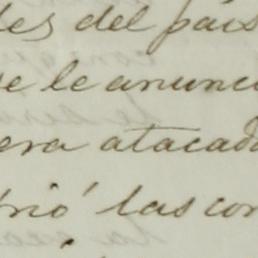 les del país
se le anunc
era atacad
rió las con